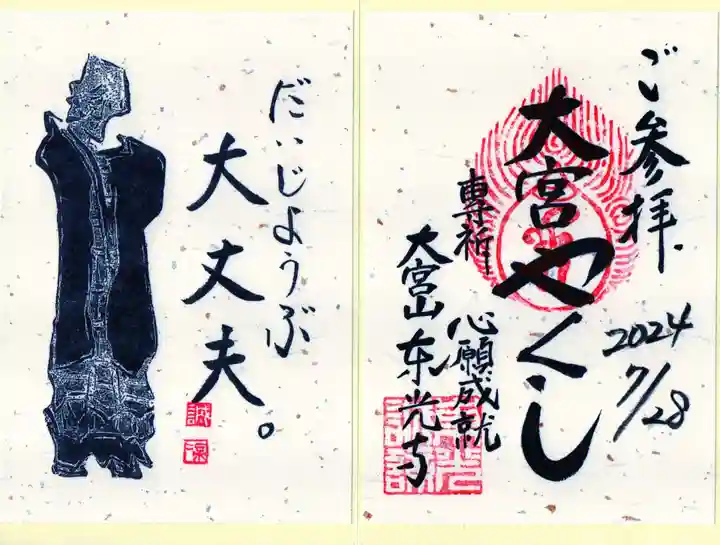 ご参拝
2024
7/28
大宮やくし
専祈
心願成就
大宮山东光寺
だいじょうぶ
大丈夫。